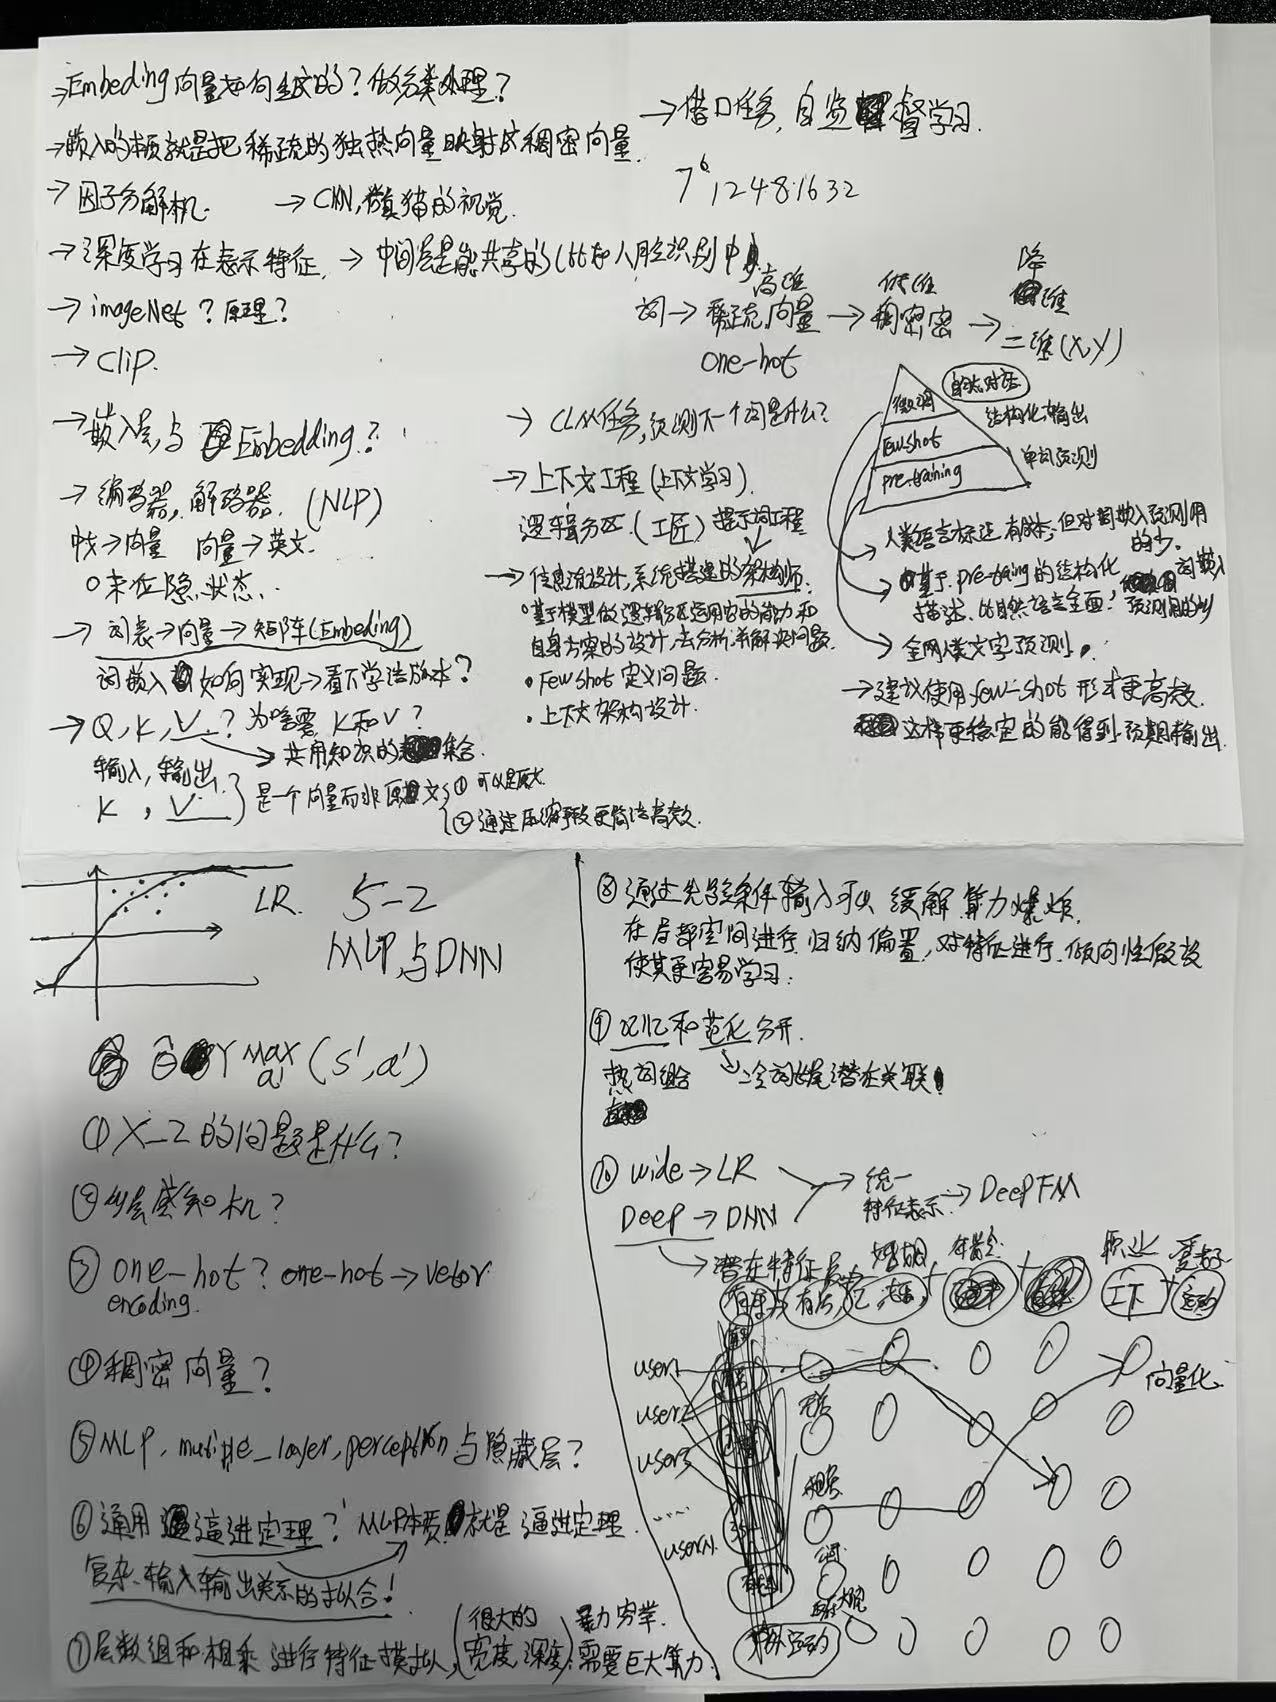 →Embeding向量如何生成的？做分类处理？
→嵌入的本质就是把稀疏的独热向量映射成稠密向量
→因子分解机. →CNN,仿真猫的视觉.
→深度学习在表示特征, →中间层是能共享的(比如人脸识别中)
→imageNet？原理？
→Clip.
→嵌入层,与Embedding？
→编码器,解码器.(NLP)
中文→向量 向量→英文.
→词表→向量→矩阵(Embeding)
词嵌入如何实现→看不学法版本？
→Q,K,V？为啥需K和V？
→共用知识的集合.
输入,输出.
K,V.}是一个向量而非原文
①可以是原文
②通过压缩更简洁高效.
→借口任务,自监督学习.
7⁶,12481632
词→稀疏向量→稠密→二维(X,Y)
高维 低维 降维
one-hot
→CLM任务,预测下一个词是什么？
→上下文工程(上下文学习).
逻辑分区.(工匠)提示词工程
→信息流设计,系统搭建的架构师.
•基于模型做逻辑分区运用它的能力和
自身方案的设计,去分析,并解决问题.
•Few shot定义问题.
•上下文架构设计.
微调 自然对话
few-shot 结构化输出
pre-training 单词预测
→人类语言标注有成本,但对词嵌入预测用
的少.
→基于pre-traing的结构化
→全网人类文字预测.
→建议使用few-shot形式更高效.
这样更稳定的能得到预期输出.
LR. 5-2
MLP与DNN
γ max a' (s',a')
①X-2的问题是什么？
②多层感知机？
③one-hot？one-hot→vetor
encoding.
④稠密向量？
⑤MLP,mutiple_layer,perception与隐藏层？
⑥通用逼进定理？MLP本质就是逼进定理.
复杂输入输出关系的拟合！
⑦层数组和相乘进行特征模拟,(很大的宽度,深度)暴力穷举.需要巨大算力.
⑧通过先验条件输入可以缓解算力爆炸.
在局部空间进行归纳偏置,对特征进行倾向性假设
使其更容易学习.
⑨记忆和范化分开.
热词组合 →冷词长尾潜在关联
⑩wide→LR
Deep→DNN
→统一
特征表示→DeepFM
→潜在特征
婚姻 年龄 职业 爱好
有房 运动
user1
user2
user3
.....
userN.
向量化
租房